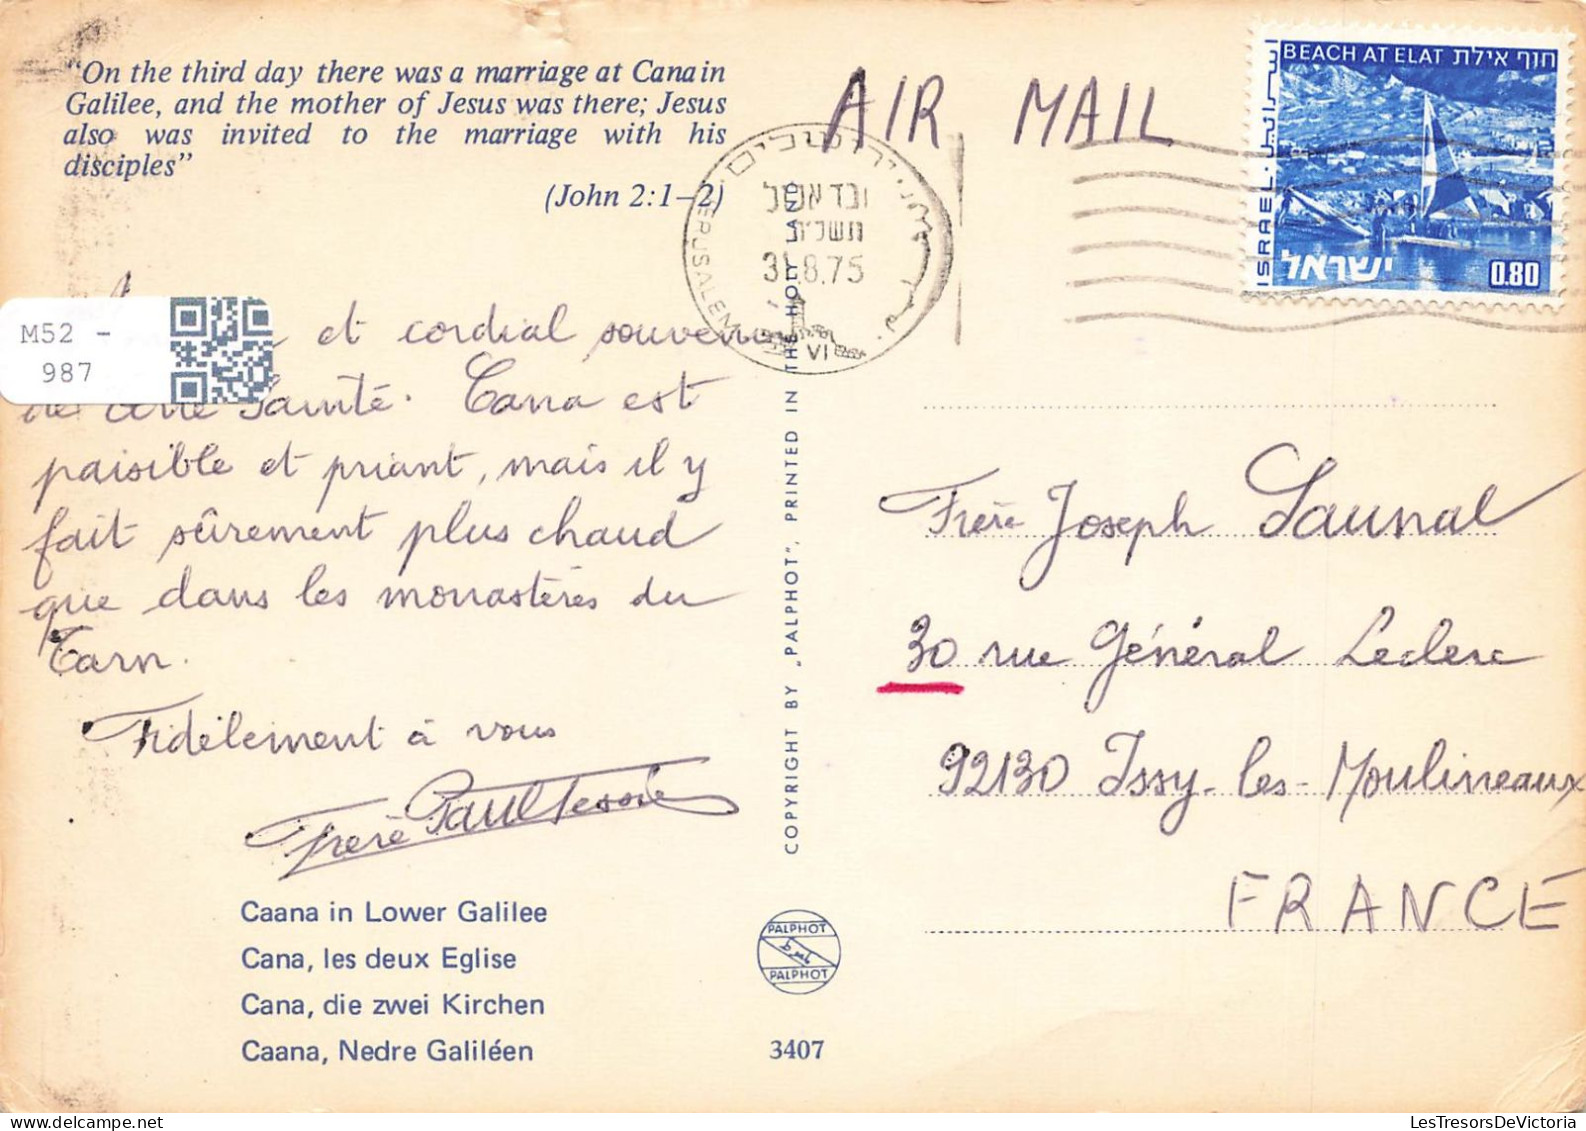 "On the third day there was a marriage at Cana in
Galilee, and the mother of Jesus was there; Jesus
also was invited to the marriage with his
disciples"
(John 2:1–2)
AIR MAIL
BEACH AT ELAT חוף אילת
ISRAEL
اسرائيل
ישראל
0.80
ירושלים
JERUSALEM
31.8.75
VI
M52 -
987
et cordial souvenir
de Terre Sainte. Cana est
paisible et priant, mais il y
fait sûrement plus chaud
que dans les monastères du
Tarn.
Fidèlement à vous
Frère Paul Tessié
Caana in Lower Galilee
Cana, les deux Eglise
Cana, die zwei Kirchen
Caana, Nedre Galiléen
COPYRIGHT BY „PALPHOT", PRINTED IN THE HOLY LAND
PALPHOT
PALPHOT
3407
Frère Joseph Launal
30 rue Général Leclerc
92130 Issy-les-Moulineaux
FRANCE
LesTresorsDeVictoria